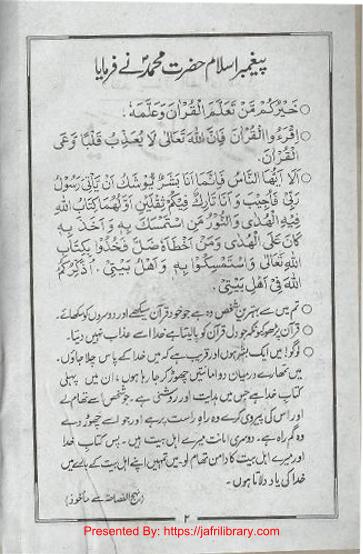 پیغمبر اسلام حضرت محمدؐ نے فرمایا
خَيْرُكُمْ مَّنْ تَعَلَّمَ الْقُرْاٰنَ وَعَلَّمَهٗ.
اِقْرَءُوا الْقُرْاٰنَ فَاِنَّ اللهَ تَعَالٰى لَا يُعَذِّبُ قَلْبًا وَّعَى
الْقُرْاٰنَ.
اَلَا اَيُّهَا النَّاسُ فَاِنَّمَا اَنَا بَشَرٌ يُّوْشَكُ اَنْ يَّاْتِيَ رَسُوْلُ
رَبِّيْ فَاُجِيْبَ وَ اَنَا تَارِكٌ فِيْكُمْ ثَقَلَيْنِ اَوَّلُهُمَا كِتَابُ اللهِ
فِيْهِ الْهُدٰى وَالنُّوْرُ مَنِ اسْتَمْسَكَ بِهٖ وَ اَخَذَ بِهٖ
كَانَ عَلَى الْهُدٰى وَ مَنْ اَخْطَاَهٗ ضَلَّ فَخُذُوْا بِكِتَابِ
اللهِ تَعَالٰى وَ اسْتَمْسِكُوْا بِهٖ وَ اَهْلُ بَيْتِيْ. اُذَكِّرُكُمُ
اللهَ فِيْ اَهْلِ بَيْتِيْ.
تم میں سے بہترین شخص وہ ہے جو خود قرآن سیکھے اور دوسروں کو سکھائے۔
قرآن پڑھو کیونکہ جو دل قرآن کو پالیتا ہے خدا اسے عذاب نہیں دیتا۔
لوگو! میں ایک بشر ہوں اور قریب ہے کہ میں خدا کے پاس چلا جاؤں۔
میں تمھارے درمیان دو امانتیں چھوڑ کر جا رہا ہوں، ان میں پہلی
کتاب خدا ہے جس میں ہدایت اور روشنی ہے۔ جو شخص اسے تھام لے
اور اس کی پیروی کرے وہ راہ راست پر ہے اور جو اسے چھوڑ دے
وہ گمراہ ہے۔ دوسری امانت میرے اہل بیت ہیں۔ پس کتاب خدا
اور میرے اہل بیت کا دامن تھام لو۔ میں تمہیں اپنے اہل بیت کے بارے میں
خدا کی یاد دلاتا ہوں۔
(نہج الفصاحۃ سے ماخوذ)
۲
Presented By: https://jafrilibrary.com